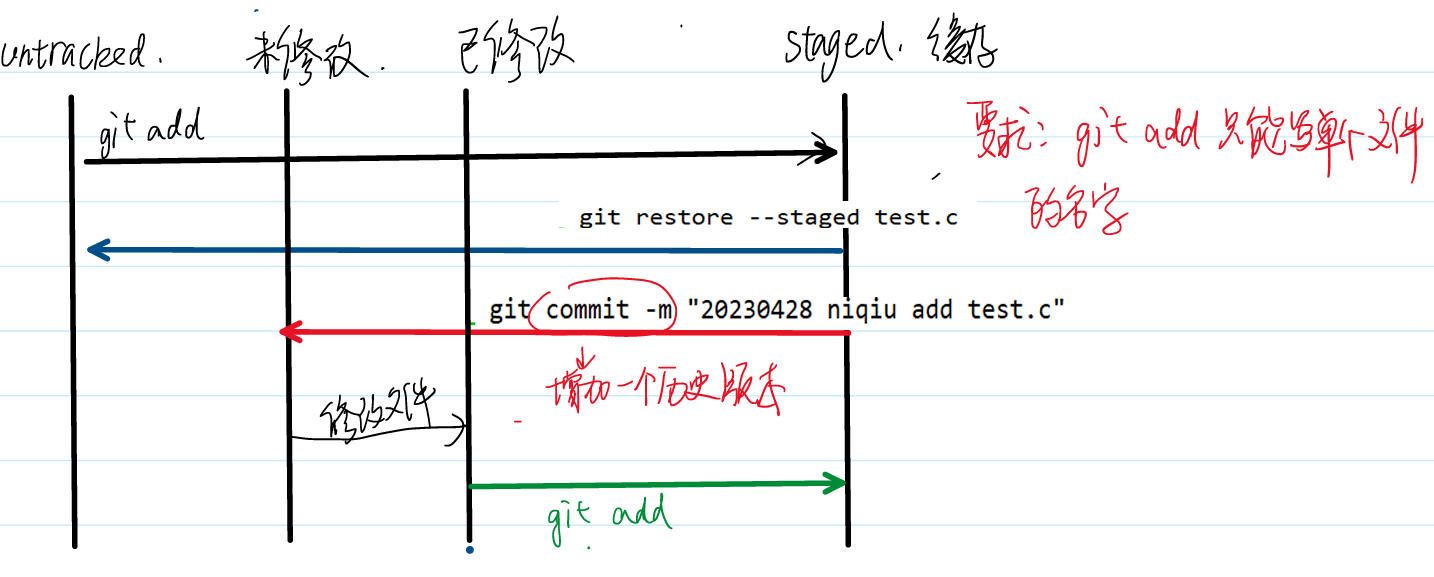 untracked.
未修改.
已修改
staged. 缓存
git add
要求: git add 只能写单个文件
的名字
git restore --staged test.c
git commit -m "20230428 niqiu add test.c"
增加一个历史版本
修改文件
git add